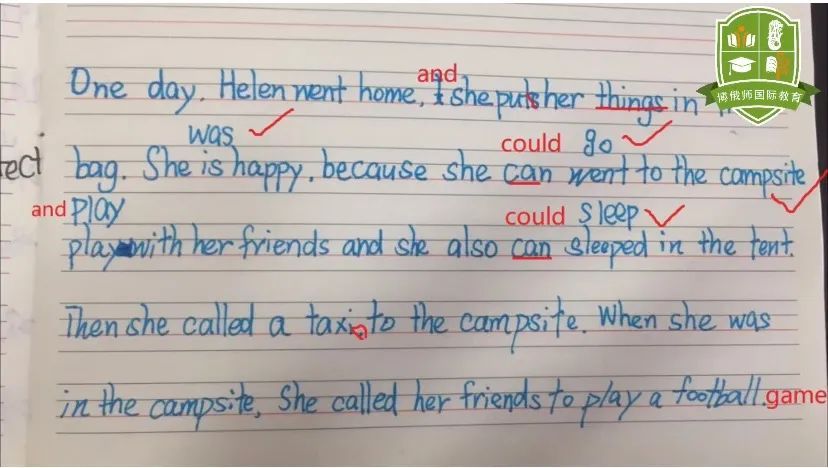 博俄师国际教育
and
One day, Helen went home, she puts her things in
was could go
ect bag. She is happy. because she can went to the campsite
and play could sleep
play with her friends and she also can sleeped in the tent.
Then she called a taxi to the campsite. When she was
in the campsite, She called her friends to play a football. game